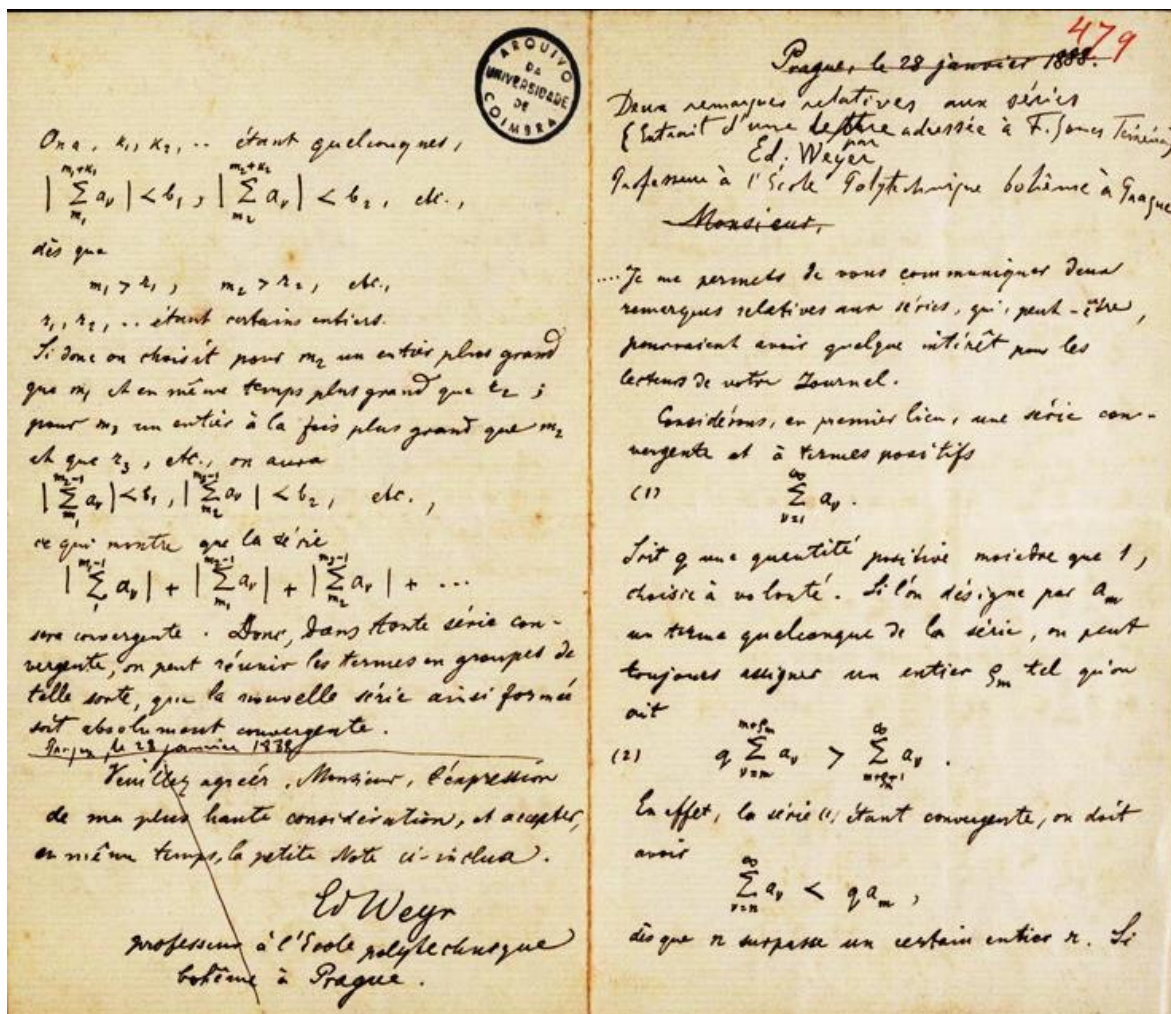 ARQUIVO
DA
UNIVERSIDADE
DE
COIMBRA
On a, κ₁, κ₂, .. étant quelconques,
|∑_{m₁}^{m₁+κ₁} aᵥ| < b₁, |∑_{m₂}^{m₂+κ₂} aᵥ| < b₂, etc.,
dès que
m₁ > r₁, m₂ > r₂, etc.,
r₁, r₂, .. étant certains entiers.
Si donc on choisit pour m₂ un entier plus grand
que m₁ et en même temps plus grand que r₂ ;
pour m₃ un entier à la fois plus grand que m₂
et que r₃, etc., on aura
|∑_{m₁}^{m₂-1} aᵥ| < b₁, |∑_{m₂}^{m₃-1} aᵥ| < b₂, etc.,
ce qui montre que la série
|∑_{1}^{m₁-1} aᵥ| + |∑_{m₁}^{m₂-1} aᵥ| + |∑_{m₂}^{m₃-1} aᵥ| + ...
sera convergente. Donc, dans toute série con-
vergente, on peut réunir les termes en groupes de
telle sorte, que la nouvelle série ainsi formée
soit absolument convergente.
le 28 janvier 1888
Veuillez agréér, Monsieur, l'expression
de ma plus haute considération, et accepter,
en même temps, la petite Note ci-inclua.
Ed Weyr
professeur à l'École polytechnique
bohême à Prague.
479
Prague, le 28 janvier 1888.
Deux remarques relatives aux séries
(Extrait d'une lettre adressée à F. Gomes Teixeira
par
Ed. Weyer
Professeur à l'École Polytechnique bohême à Prague
Monsieur,
.... Je me permets de vous communiquer deux
remarques relatives aux séries, qui, peut-être,
pourraient avoir quelque intérêt pour les
lecteurs de votre Journal.
Considérons, en premier lieu, une série con-
vergente et à termes positifs
(1) ∑_{ν=1}^{∞} aᵥ.
Soit q une quantité positive moindre que 1,
choisie à volonté. Si l'on désigne par aₘ
un terme quelconque de la série, on peut
toujours assigner un entier ϱₘ tel qu'on
ait
(2) q ∑_{ν=m}^{m+ϱₘ} aᵥ > ∑_{m+ϱₘ+1}^{∞} aᵥ.
En effet, la série (1) étant convergente, on doit
avoir
∑_{ν=n}^{∞} aᵥ < q aₘ,
dès que n surpasse un certain entier r. Si